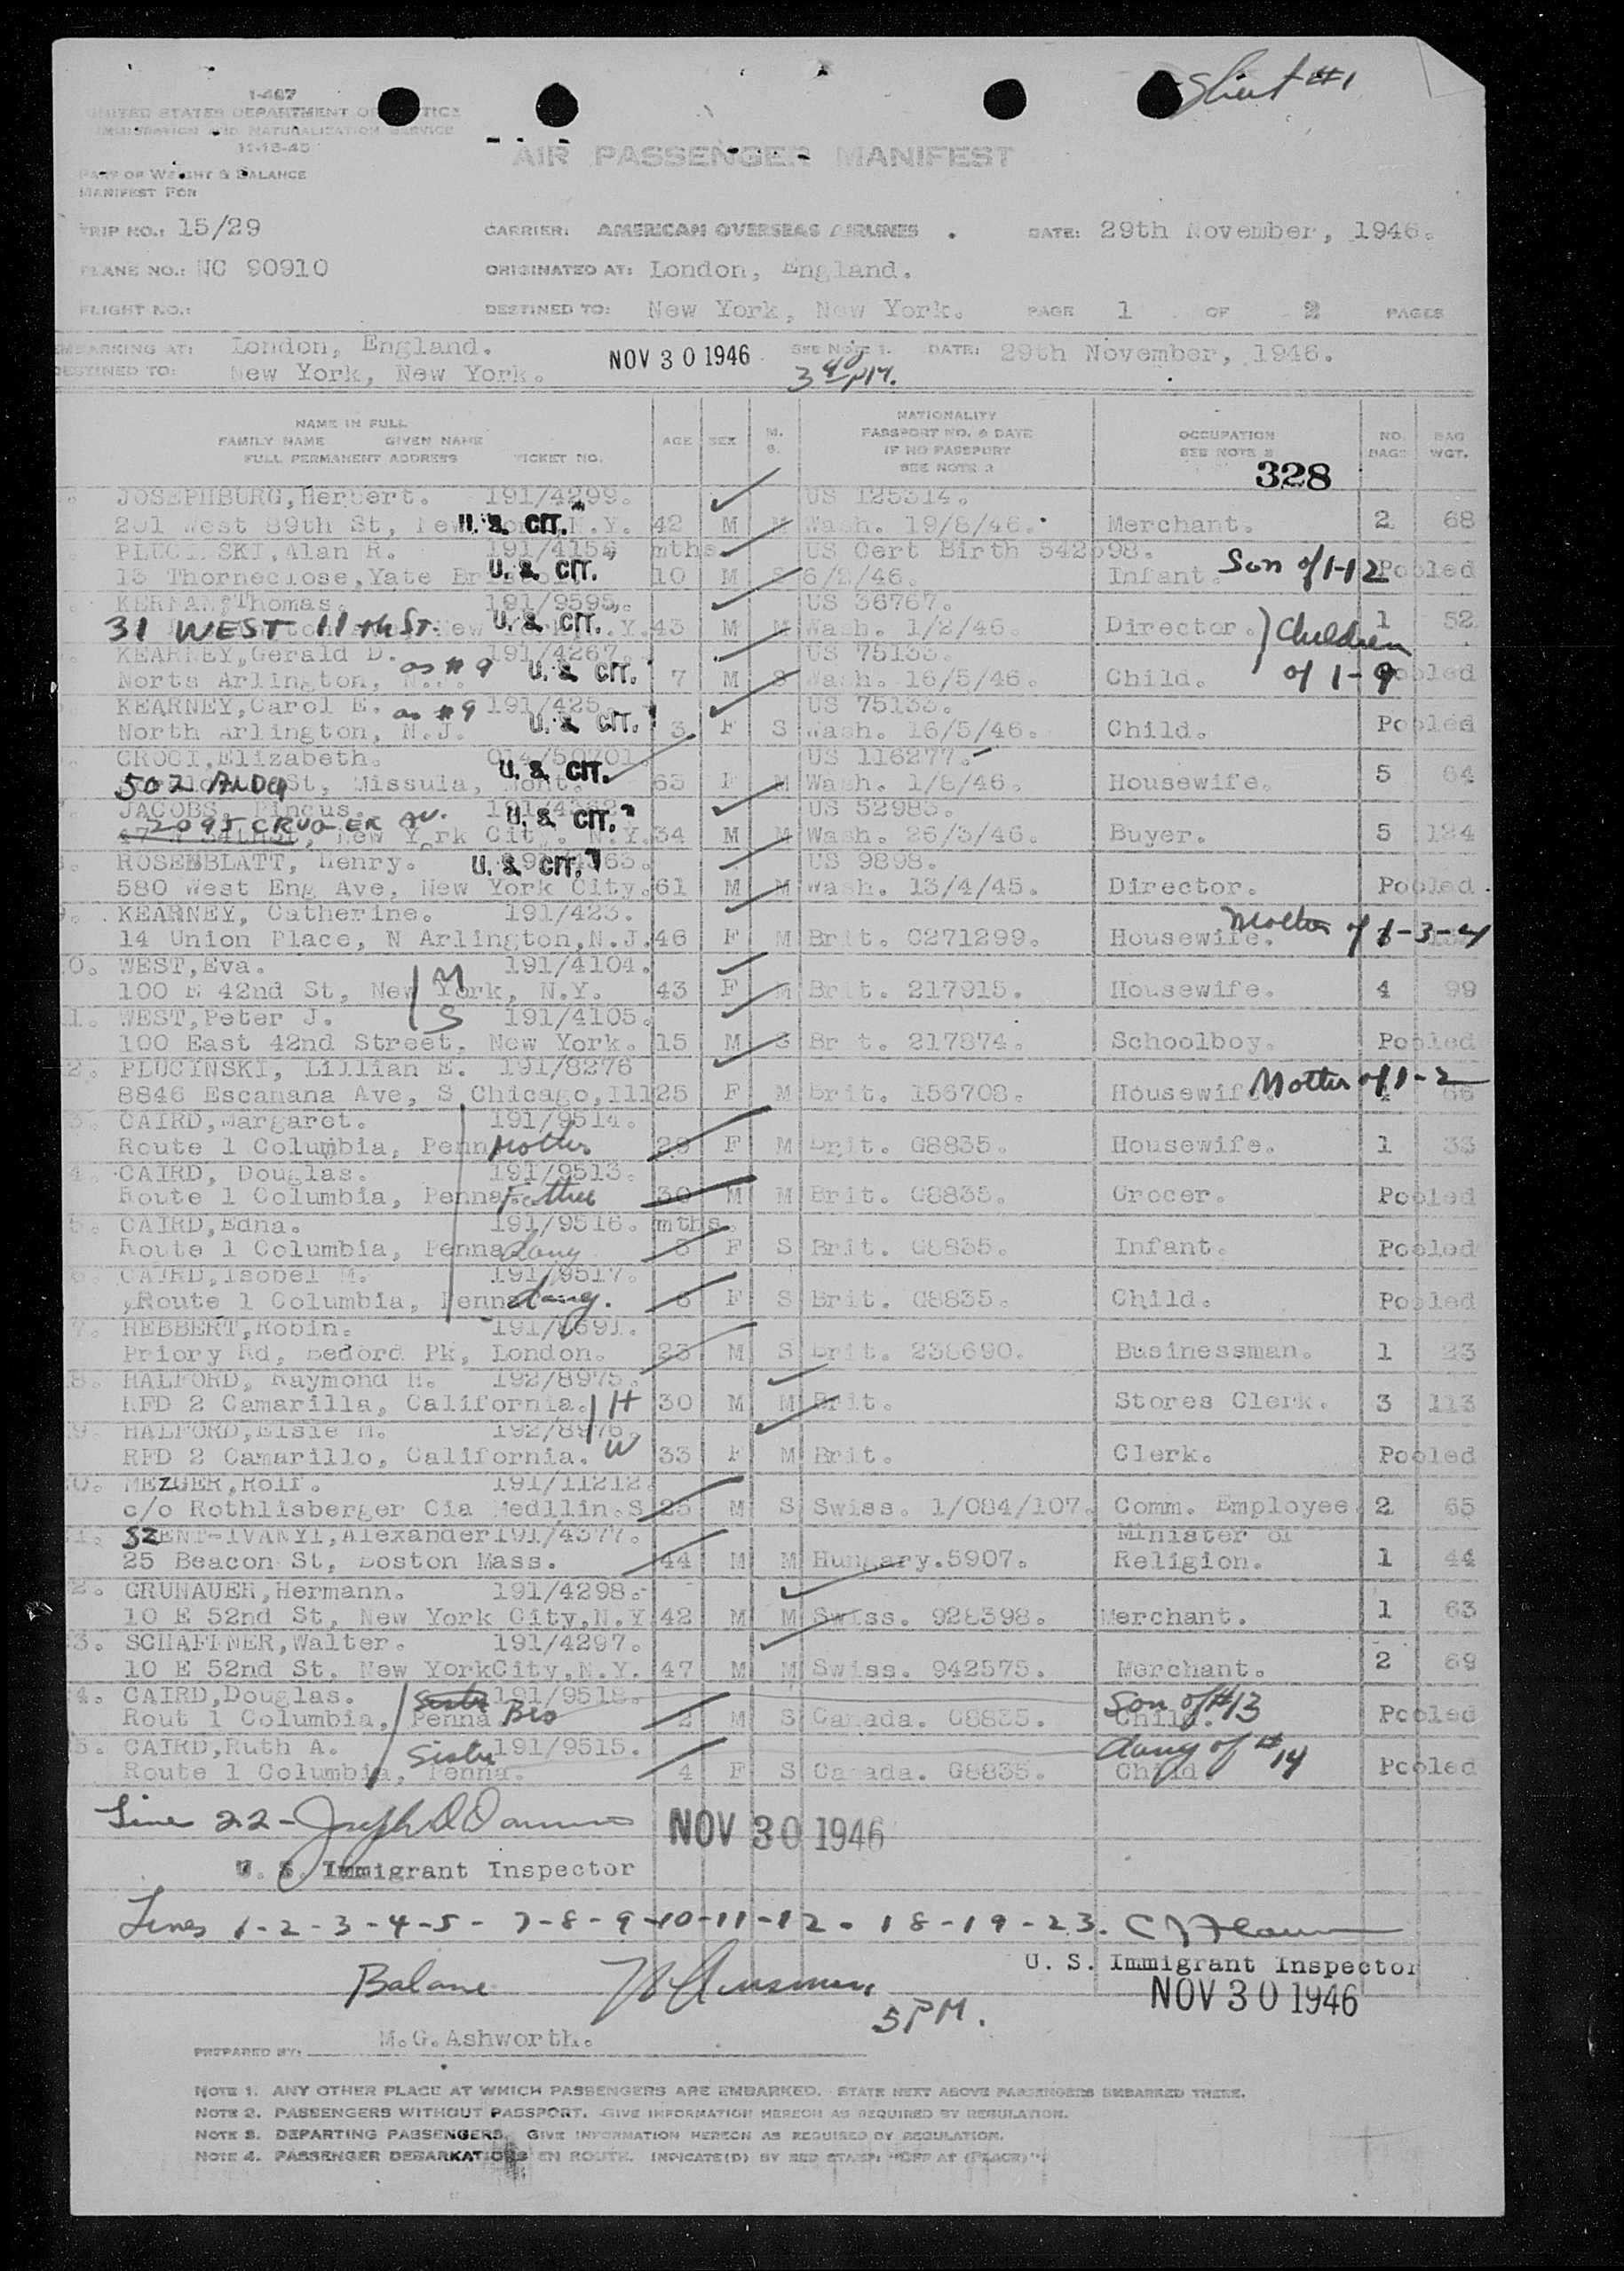 Sheet #1
1-467
UNITED STATES DEPARTMENT OF JUSTICE
IMMIGRATION AND NATURALIZATION SERVICE
11-15-45
AIR PASSENGER MANIFEST
PART OF WEIGHT & BALANCE
MANIFEST FOR
TRIP NO.: 15/29 CARRIER: AMERICAN OVERSEAS AIRLINES . DATE: 29th November, 1946.
PLANE NO.: NC 90910 ORIGINATED AT: London, England.
FLIGHT NO.: DESTINED TO: New York, New York. PAGE 1 OF 2 PAGES
EMBARKING AT: London, England. NOV 30 1946 SEE NOTE 1. DATE: 29th November, 1946.
DESTINED TO: New York, New York. 3 40 PM.
NAME IN FULL
FAMILY NAME GIVEN NAME
FULL PERMANENT ADDRESS TICKET NO. AGE SEX M. S. NATIONALITY PASSPORT NO. & DATE IF NO PASSPORT SEE NOTE 2 OCCUPATION SEE NOTE 2 NO. BAGS BAG WGT.
328
JOSEPHBURG, Herbert. 191/4299. US 125314.
201 West 89th St, New York, N.Y. U. S. CIT. 42 M M Wash. 19/8/46. Merchant. 2 68
PLUCINSKI, Alan R. 191/4154 mths US Cert Birth 542598.
13 Thorneclose, Yate U. S. CIT. 10 M S 6/2/46. Infant. Son of 1-12 Pooled
KERNAN, Thomas. 191/9595. US 36767.
31 WEST 11th ST. New U. S. CIT. N.Y. 43 M M Wash. 1/2/46. Director. 1 52
Children of 1-9
KEARNEY, Gerald D. as #9 191/4267. US 75133.
North Arlington, N.J. U. S. CIT. 7 M S Wash. 16/5/46. Child. Pooled
KEARNEY, Carol E. as #9 191/425 US 75133.
North Arlington, N.J. U. S. CIT. 3 F S Wash. 16/5/46. Child. Pooled
CROCI, Elizabeth. 014/50701 US 116277.
502 ALDER St, Missula, Mont. U. S. CIT. 63 F M Wash. 1/8/46. Housewife. 5 64
JACOBS, Pincus. US 52983.
2095 CRUGER AV. New York City, N.Y. U. S. CIT. 34 M M Wash. 26/3/46. Buyer. 5 124
ROSENBLATT, Henry. U. S. CIT. US 9898.
580 West Eng Ave, New York City. 61 M M Wash. 13/4/45. Director. Pooled.
KEARNEY, Catherine. 191/423.
14 Union Place, N Arlington, N.J. 46 F M Brit. C271299. Housewife. Mother of 1-3-4
10. WEST, Eva. M 191/4104.
100 E 42nd St, New York, N.Y. 43 F M Brit. 217915. Housewife. 4 99
11. WEST, Peter J. S 191/4105.
100 East 42nd Street, New York. 15 M S Brit. 217874. Schoolboy. Pooled
12. PLUCINSKI, Lillian E. 191/8276
8846 Escanana Ave, S Chicago, Ill 25 F M Brit. 156708. Housewife Mother of 1-2 66
13. CAIRD, Margaret. 191/9514.
Route 1 Columbia, Penna Mother 29 F M Brit. G8835. Housewife. 1 33
14. CAIRD, Douglas. 191/9513.
Route 1 Columbia, Penna Father 30 M M Brit. G8835. Grocer. Pooled
15. CAIRD, Edna. 191/9516. mths.
Route 1 Columbia, Penna daug 8 F S Brit. G8835. Infant. Pooled
16. CAIRD, Isobel M. 191/9517.
Route 1 Columbia, Penna daug. 6 F S Brit. G8835. Child. Pooled
17. HEBBERT, Robin. 191/8691.
Priory Rd, Bedord Pk, London. 23 M S Brit. 238690. Businessman. 1 23
18. HALFORD, Raymond H. 192/8975.
RFD 2 Camarilla, California. H 30 M M Brit. Stores Clerk. 3 113
19. HALFORD, Elsie M. 192/8976.
RFD 2 Camarillo, California. W 33 F M Brit. Clerk. Pooled
20. MEZGER, Rolf. 191/11212.
c/o Rothlisberger Cia Medllin.S 25 M S Swiss. 1/084/107. Comm. Employee 2 65
21. SZENT-IVANYI, Alexander 191/4377. Minister of
25 Beacon St, Boston Mass. 44 M M Hungary. 5907. Religion. 1 44
22. GRUNAUER, Hermann. 191/4298.
10 E 52nd St, New York City, N.Y 42 M M Swiss. 928398. Merchant. 1 63
23. SCHAFFNER, Walter. 191/4297.
10 E 52nd St, New YorkCity, N.Y. 47 M M Swiss. 942575. Merchant. 2 69
24. CAIRD, Douglas. 191/9518. Son of #13
Rout 1 Columbia, Penna Bro 2 M S Canada. G8835. Child. Pooled
25. CAIRD, Ruth A. Sister 191/9515. daug of #14
Route 1 Columbia, Penna. 4 F S Canada. G8835. Child. Pooled
Line 22 - Joseph D NOV 30 1946
U. S. Immigrant Inspector
Lines 1-2-3-4-5-7-8-9-10-11-12-18-19-23.
U. S. Immigrant Inspector
Balance
NOV 30 1946
5 PM.
PREPARED BY: M.G.Ashworth.
NOTE 1. ANY OTHER PLACE AT WHICH PASSENGERS ARE EMBARKED. STATE NEXT ABOVE PASSENGERS EMBARKED THERE.
NOTE 2. PASSENGERS WITHOUT PASSPORT. GIVE INFORMATION HEREON AS REQUIRED BY REGULATION.
NOTE 3. DEPARTING PASSENGERS. GIVE INFORMATION HEREON AS REQUIRED BY REGULATION.
NOTE 4. PASSENGER DEBARKATIONS EN ROUTE. INDICATE(D) BY RED STAMP: "OFF AT (PLACE)"